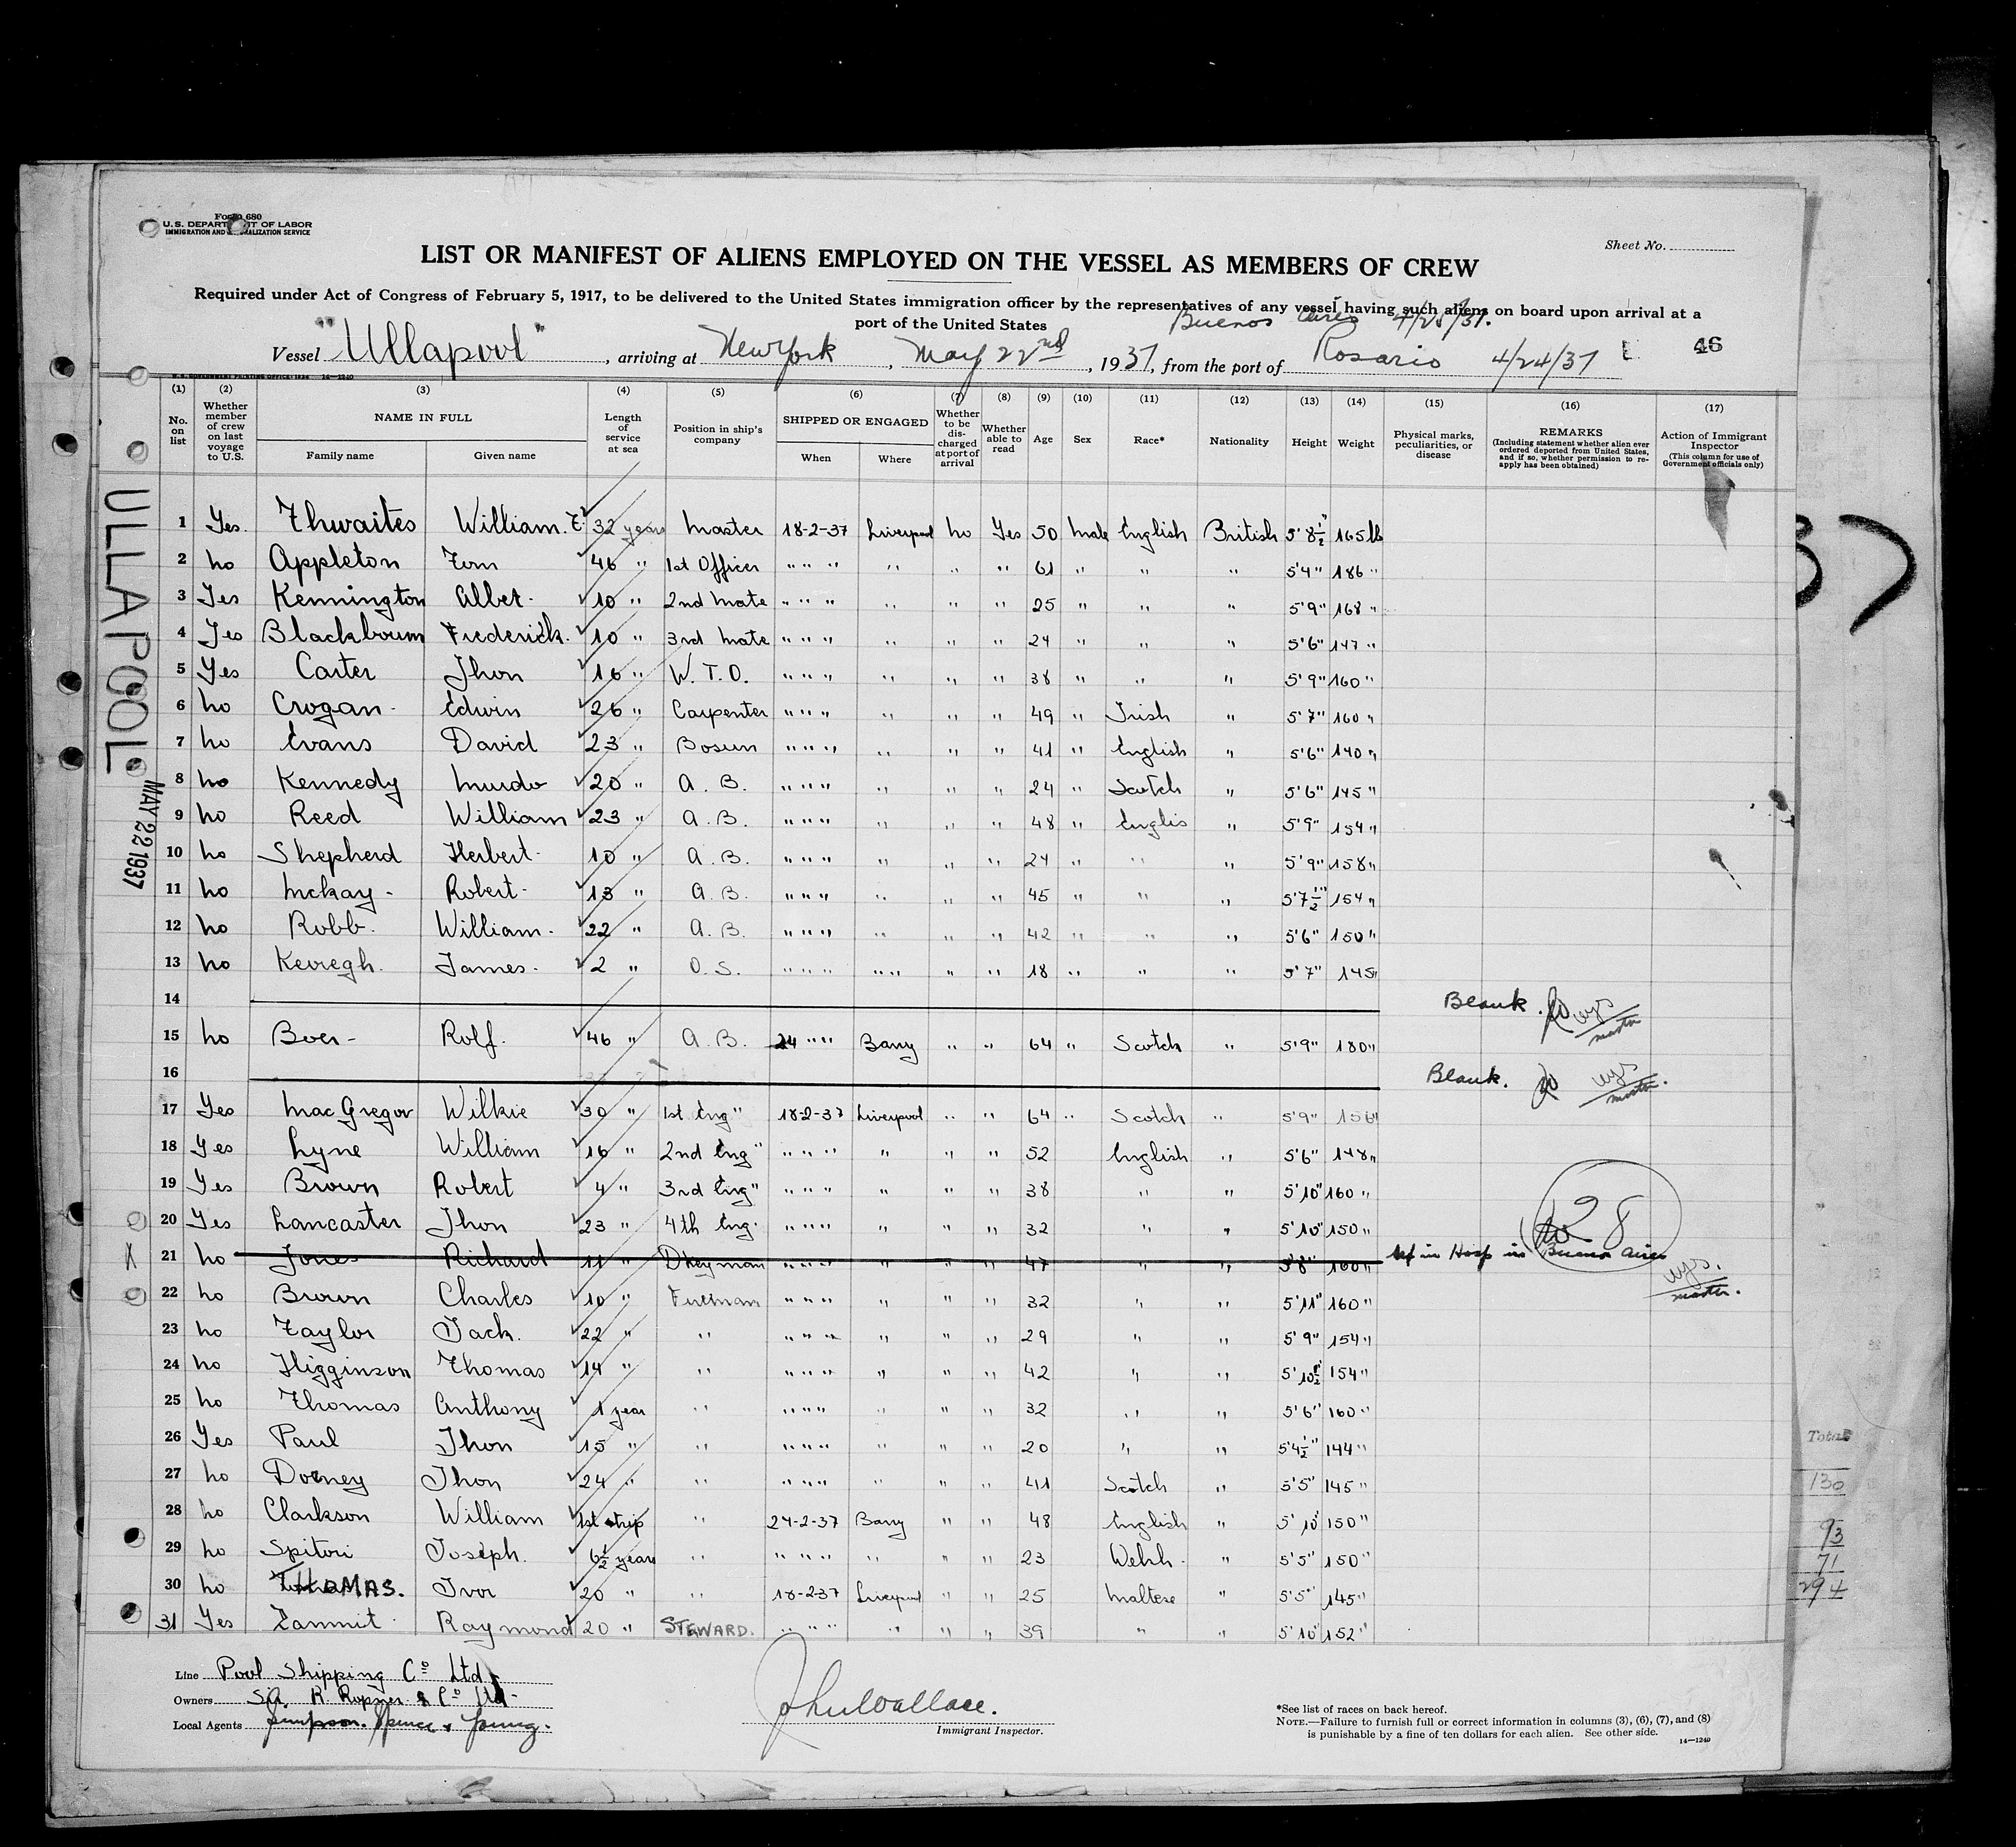 Form 680
U.S. DEPARTMENT OF LABOR
IMMIGRATION AND NATURALIZATION SERVICE
Sheet No.
LIST OR MANIFEST OF ALIENS EMPLOYED ON THE VESSEL AS MEMBERS OF CREW
Required under Act of Congress of February 5, 1917, to be delivered to the United States immigration officer by the representatives of any vessel having such aliens on board upon arrival at a
port of the United States
Buenos Aires 4/25/37.
Vessel "Ullapool", arriving at New York, May 22nd, 1937, from the port of Rosario 4/24/37
46
(1) (2) (3) (4) (5) (6) (7) (8) (9) (10) (11) (12) (13) (14) (15) (16) (17)
No. on list
Whether member of crew on last voyage to U.S.
NAME IN FULL
Family name
Given name
Length of service at sea
Position in ship's company
SHIPPED OR ENGAGED
When
Where
Whether to be discharged at port of arrival
Whether able to read
Age
Sex
Race*
Nationality
Height
Weight
Physical marks, peculiarities, or disease
REMARKS
(Including statement whether alien ever ordered deported from United States, and if so, whether permission to reapply has been obtained)
Action of Immigrant Inspector
(This column for use of Government officials only)
ULLAPOOL
MAY 22 1937
1 Yes. Thwaites William. E. 32 years Master 18-2-37 Liverpool no Yes 50 male English British 5' 8½" 165 lb
2 no Appleton Tom 46 " 1st Officer " " " " " " 61 " " " 5'4" 186 "
3 Yes Kennington Albet. 10 " 2nd mate " " " " " " 25 " " " 5'9" 168 "
4 Yes Blackbourn Frederick. 10 " 3rd mate " " " " " " 24 " " " 5'6" 147 "
5 Yes Carter Jhon 16 " W. T. O. " " " " " " 38 " " " 5'9" 160 "
6 no Crogan Edwin 26 " Carpenter " " " " " " 49 " Irish " 5'7" 160 "
7 no Evans David 23 " Bosun " " " " " " 41 " English " 5'6" 140 "
8 no Kennedy Murdo 20 " A. B. " " " " " " 24 " Scotch " 5'6" 145 "
9 no Reed William 23 " A. B. " " " " " " 48 " Englis " 5'9" 154 "
10 no Shepherd Herbert 10 " A. B. " " " " " " 24 " " " 5'9" 158 "
11 no McKay Robert 13 " A. B. " " " " " " 45 " " " 5'7½" 154 "
12 no Robb. William 22 " A. B. " " " " " " 42 " " " 5'6" 150 "
13 no James 2 " O. S. " " " " " " 18 " " " 5'7" 145 "
14 Blank.
15 no Boer Rolf. 46 " A. B. 24 " " Barry " " 64 " Scotch " 5'9" 180 "
16 Blank.
17 Yes MacGregor Wilkie 30 " 1st Eng" 18-2-37 Liverpool " " 64 " Scotch " 5'9" 156 "
18 Yes Lyne William 16 " 2nd Eng" " " " " " " 52 English " 5'6" 148 "
19 Yes Brown Robert 4 " 3rd Eng" " " " " " " 38 " " 5'10" 160 "
20 Yes Lancaster Jhon 23 " 4th Eng. " " " " " " 32 " " 5'10" 150 "
28
21 no Jones Richard 11 " Dkeyman " " " " " " 47 " " 5'8" 160 " in Hosp in Buenos Aires
master.
22 no Brown Charles 10 " Fireman " " " " " " 32 " " 5'11" 160 "
23 no Taylor Jack. 22 " " " " " " " " 29 " " 5'9" 154 "
24 no Higginson Thomas 14 " " " " " " " " 42 " " 5'10½" 154 "
25 no Thomas Anthony 1 year " " " " " " " 32 " " 5'6" 160 "
26 Yes Paul Jhon 15 " " " " " " " " 20 " " 5'4½" 144 "
27 no Dorney Jhon 24 " " " " " " " " 41 Scotch " 5'5" 145 "
28 no Clarkson William 1st trip " 24-2-37 Barry " " 48 English " 5'10" 150 "
29 no Spitori Joseph. 6½ years " " " " " " " 23 Welsh " 5'5" 150 "
30 no THOMAS. Ivor 20 " " 18-2-37 Liverpool " " 25 Maltese " 5'5" 145 "
31 Yes Zammit Raymond 20 " STEWARD. " " " " " " 39 " " 5'10" 152 "
Total
130
93
71
294
Line Pool Shipping Co Ltd
Owners Sir R. Ropner & Co Ltd
Local Agents Simpson. Spence & Young.
John Wallace.
Immigrant Inspector.
*See list of races on back hereof.
NOTE.—Failure to furnish full or correct information in columns (3), (6), (7), and (8)
is punishable by a fine of ten dollars for each alien. See other side.
14—1240